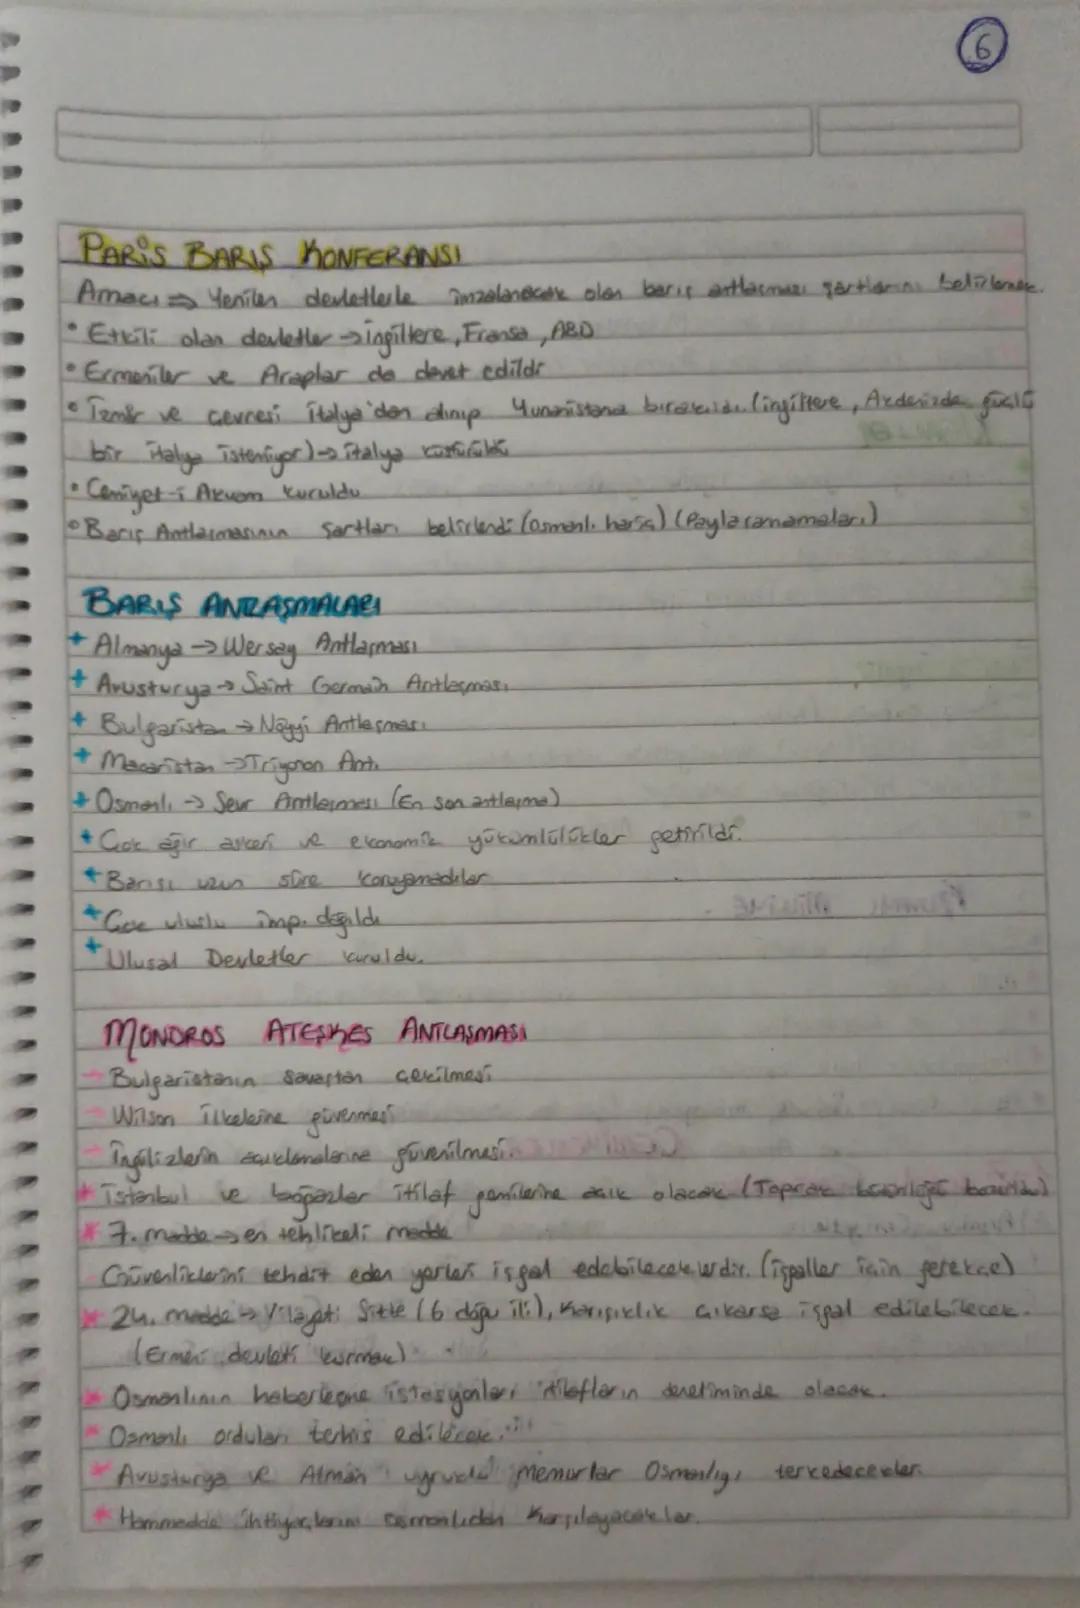 6
PARİS BARIŞ KONFERANSI
Amacı ⇒ Yenilen devletlerle imzalanacak olan barış antlaşması şartlarını belirlemek.
• Etkili olan devletler → İngiltere, Fransa, ABD
• Ermeniler ve Araplar da davet edildi
• İzmir ve çevresi İtalya'dan alınıp Yunanistana bırakıldı. (İngiltere, Akdenizde güçlü
bir İtalya istemiyor) → İtalya küstürüldü
• Cemiyet-i Akvam kuruldu
• Barış Antlaşmasının Şartları belirlendi (Osmanlı hariç) (Paylaşamamaları)
BARIŞ ANTLAŞMALARI
+ Almanya → Wersay Antlaşması
+ Avusturya → Saint Germain Antlaşması
+ Bulgaristan → Nöyyi Antlaşması
+ Macaristan → Triyanon Ant.
+ Osmanlı → Sevr Antlaşması (En son antlaşma)
+ Çok ağır askeri ve ekonomik yükümlülükler getirildi.
+ Barışı uzun süre koruyamadılar
+ Çok uluslu imp. dağıldı
+ Ulusal Devletler kuruldu.
MONDROS ATEŞKES ANTLAŞMASI
→ Bulgaristanın savaştan çekilmesi
→ Wilson ilkelerine güvenmesi
→ İngilizlerin açıklamalarına güvenilmesi
* İstanbul ve boğazlar itilaf gemilerine açık olacak (Toprak bozuldu)
* 7. madde → en tehlikeli madde
Güvenliklerini tehdit eden yerleri işgal edebileceklerdir. (işgaller için gerekçe)
* 24. madde → Vilayeti Sitte (6 doğu ili), Karışıklık çıkarsa işgal edilebilecek.
(Ermeni devleti kurmak)
* Osmanlının haberleşme istasyonları itilafların denetiminde olacak.
* Osmanlı orduları terhis edilecek.
* Avusturya ve Alman uyruklu memurlar Osmanlıyı terkedecekler.
* Hammadde ihtiyaçlarını osmanlıdan karşılayacaklar.